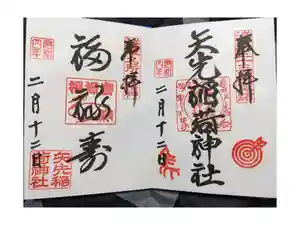 奉拝
矢先稲荷神社
二月十二日
奉拝
福禄寿
二月十二日
矢先稲
荷神社